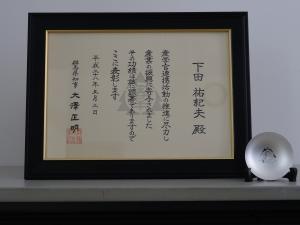 下田 祐紀夫 殿
産学官連携活動の推進に尽力し
産業の振興に寄与されました
その功績は誠に顕著でありますので
ここに表彰します
平成二十八年三月二日
群馬県知事 大澤正明